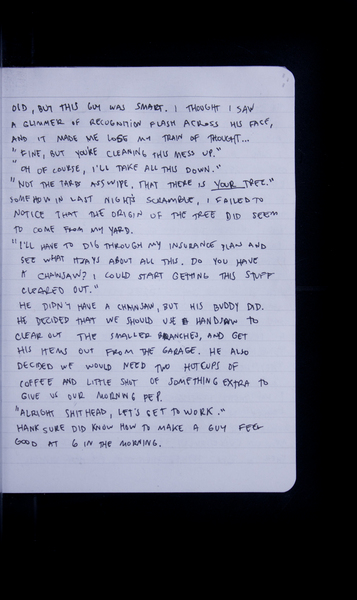 OLD, BUT THIS GUY WAS SMART. I THOUGHT I SAW
A GLIMMER OF RECOGNITION FLASH ACROSS HIS FACE,
AND IT MADE ME LOSE MY TRAIN OF THOUGHT...
"FINE, BUT YOU'RE CLEANING THIS MESS UP."
"OH OF COURSE, I'LL TAKE ALL THIS DOWN."
"NOT THE TARP ASSWIPE, THAT THERE IS YOUR TREE."
SOMEHOW IN LAST NIGHT'S SCRAMBLE, I FAILED TO
NOTICE THAT THE ORIGIN OF THE TREE DID SEEM
TO COME FROM MY YARD.
"I'LL HAVE TO DIG THROUGH MY INSURANCE PLAN AND
SEE WHAT IT SAYS ABOUT ALL THIS. DO YOU HAVE
A CHAINSAW? I COULD START GETTING THIS STUFF
CLEARED OUT."
HE DIDN'T HAVE A CHAINSAW, BUT HIS BUDDY DID.
HE DECIDED THAT WE SHOULD USE A HANDSAW TO
CLEAR OUT THE SMALLER BRANCHES, AND GET
HIS ITEMS OUT FROM THE GARAGE. HE ALSO
DECIDED WE WOULD NEED TWO HOT CUPS OF
COFFEE AND LITTLE SHOT OF SOMETHING EXTRA TO
GIVE US OUR MORNING PEP.
"ALRIGHT SHITHEAD, LET'S GET TO WORK."
HANK SURE DID KNOW HOW TO MAKE A GUY FEEL
GOOD AT 6 IN THE MORNING.